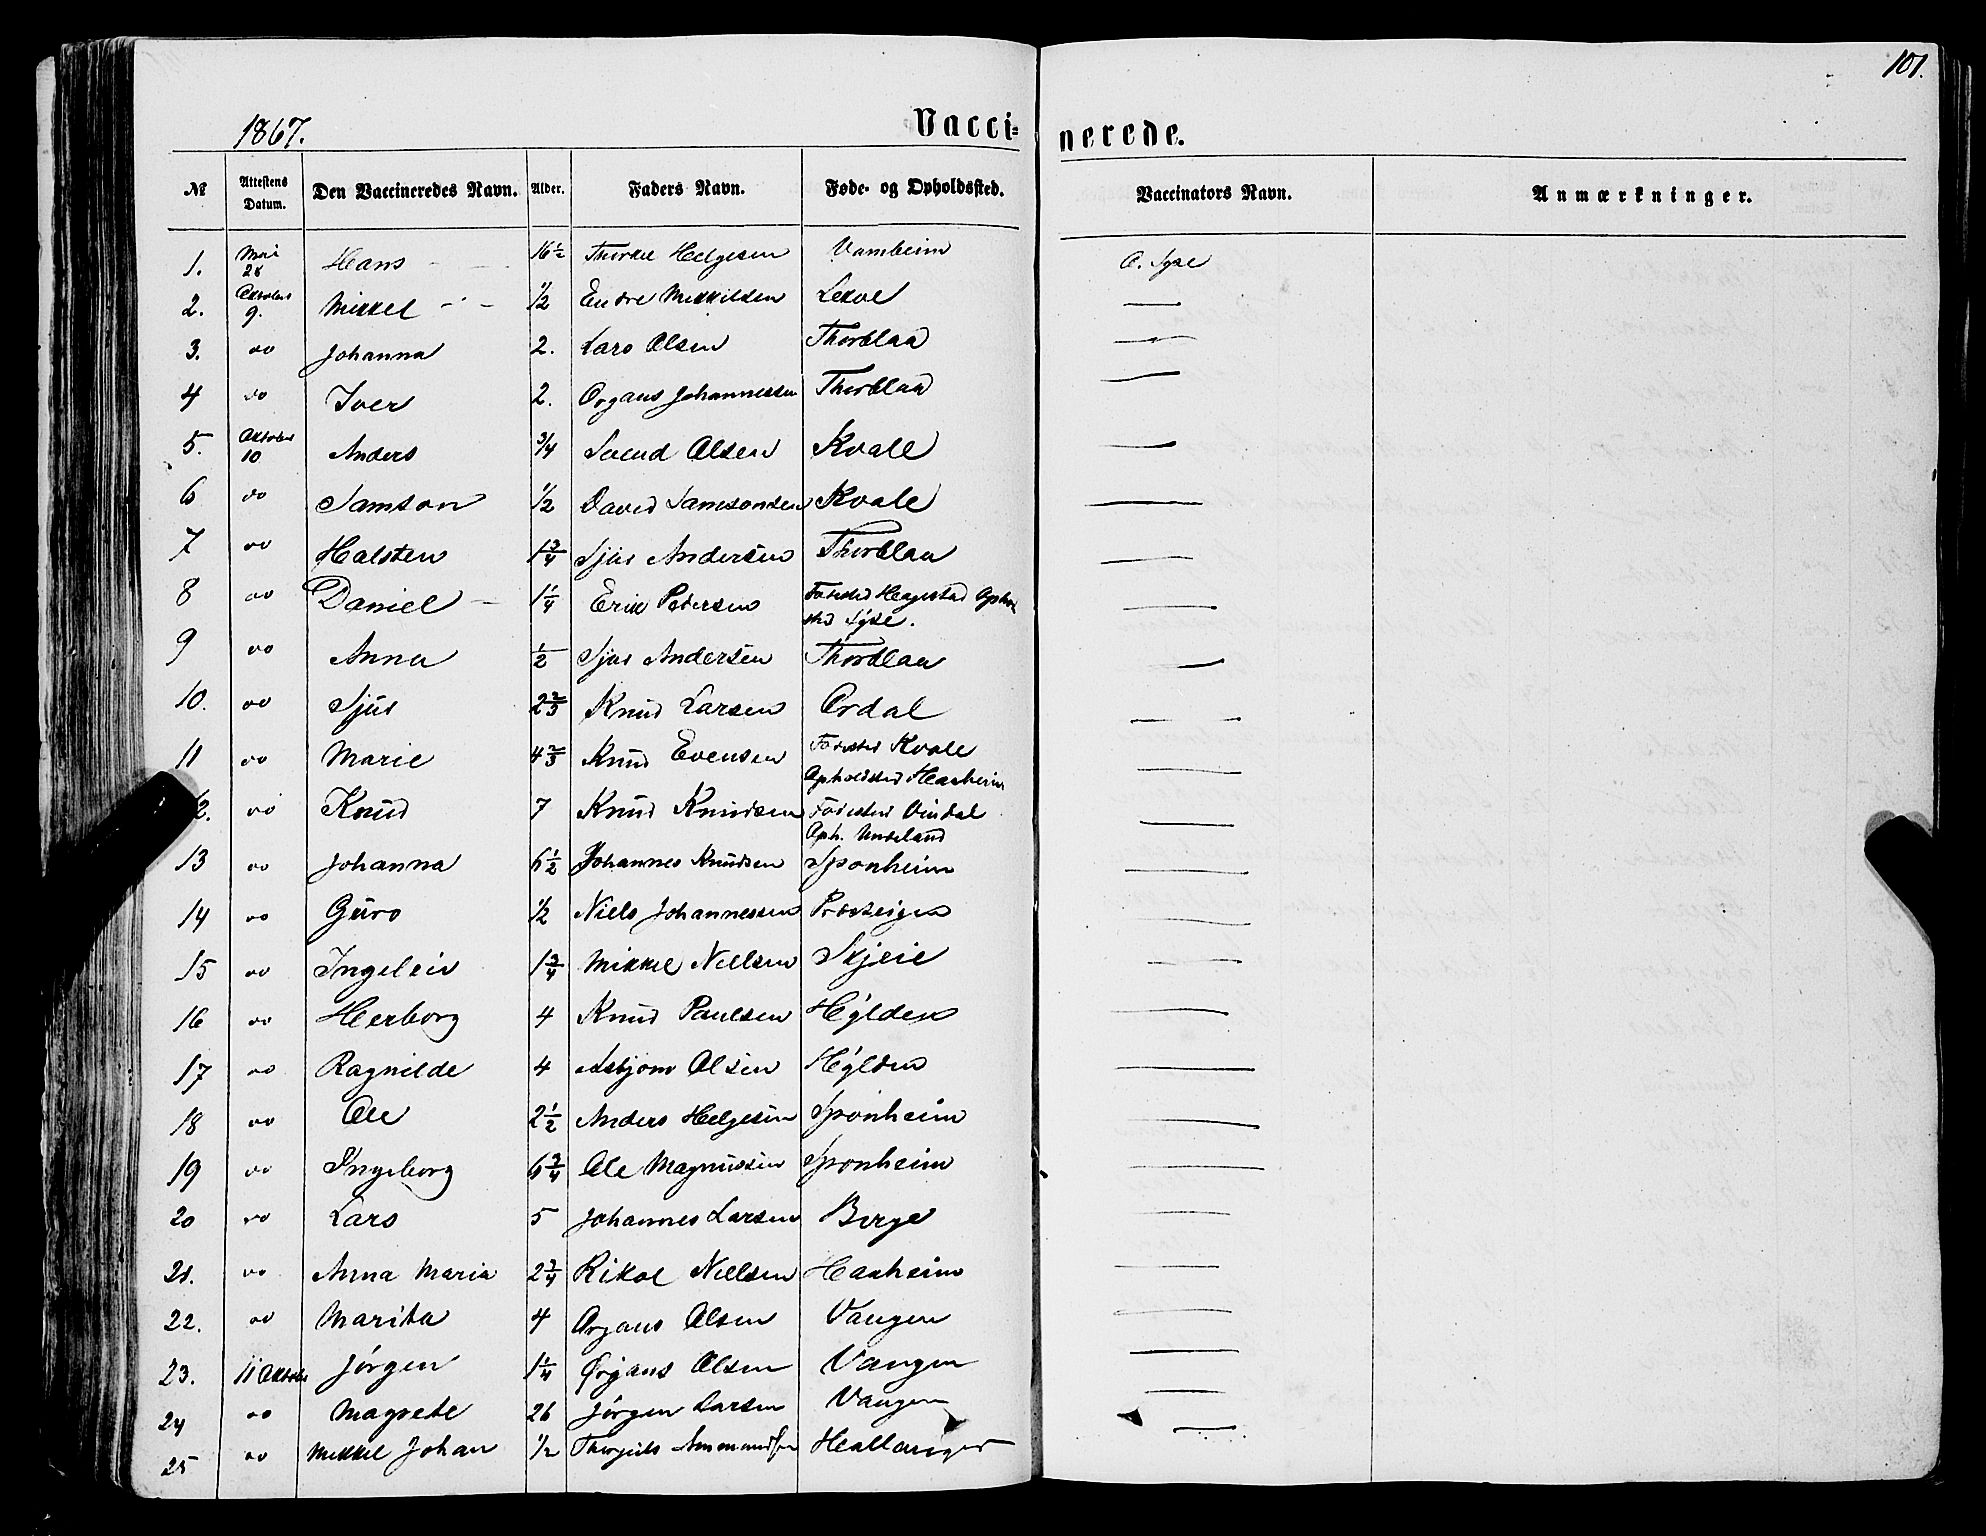 101.
1867. Vacci= nerede.
№ Attestens Datum. Den Vaccineredes Navn. Alder. Faders Navn. Føde- og Opholdssted. Vaccinators Navn. Anmærkninger.
1. Mai 28 Hans 16 1/2 Thorkel Helgesen Vamheim O. Syse
2. Oktober 9. Mikkel 1/2 Endre Mikkilsen Lekve —
3. do Johanna 2. Lars Olsen Thorblaa —
4 do Iver 2. Orgaus Johannessen Thorblaa —
5. Oktober 10 Anders 3/4 Svend Olsen Kvale —
6 do Samson 1/2 David Samsonsen Kvale —
7 do Halsten 1 3/4 Sjus Andersen Thorblaa —
8 do Daniel 1 1/4 Erik Pedersen Fødested Hagestad Ophold
sted Syse. —
9 do Anna 1/2 Sjus Andersen Thorblaa —
10. do Sjus 2 2/3 Knud Larsen Ordal —
11 do Marie 4 2/3 Knud Evensen Fødested Kvale
Opholdsted Haaheim —
12. do Knud 7 Knud Knudsen Fødested Vindal
Oph. Undeland —
13 do Johanna 6 1/2 Johannes Knudsen Sponheim —
14 do Guro 1/2 Niels Johannessen Prosteigen —
15 do Ingeleiv 1 3/4 Mikkel Nielsen Skjeie —
16 do Herborg 4 Knud Paulsen Hylden —
17 do Ragnilde 4 Asbjørn Olsen Hylden —
18 do Ole 2 1/2 Anders Helgesen Sponheim —
19 do Ingeborg 6 3/4 Ole Magnussen Sponheim —
20 do Lars 5 Johannes Larsen Berge —
21. do Anna Maria 2 3/4 Rikol Nielsen Haaheim —
22. do Marita 4 Orgaus Olsen Vangen —
23. 11 Oktober Jørgen 1 1/4 Ørgaus Olsen Vangen —
24 do Magrete 26 Jørgen Larsen Vangen —
25 do Mikkel Johan 1/2 Thorgils Ammundsen Hallanger —